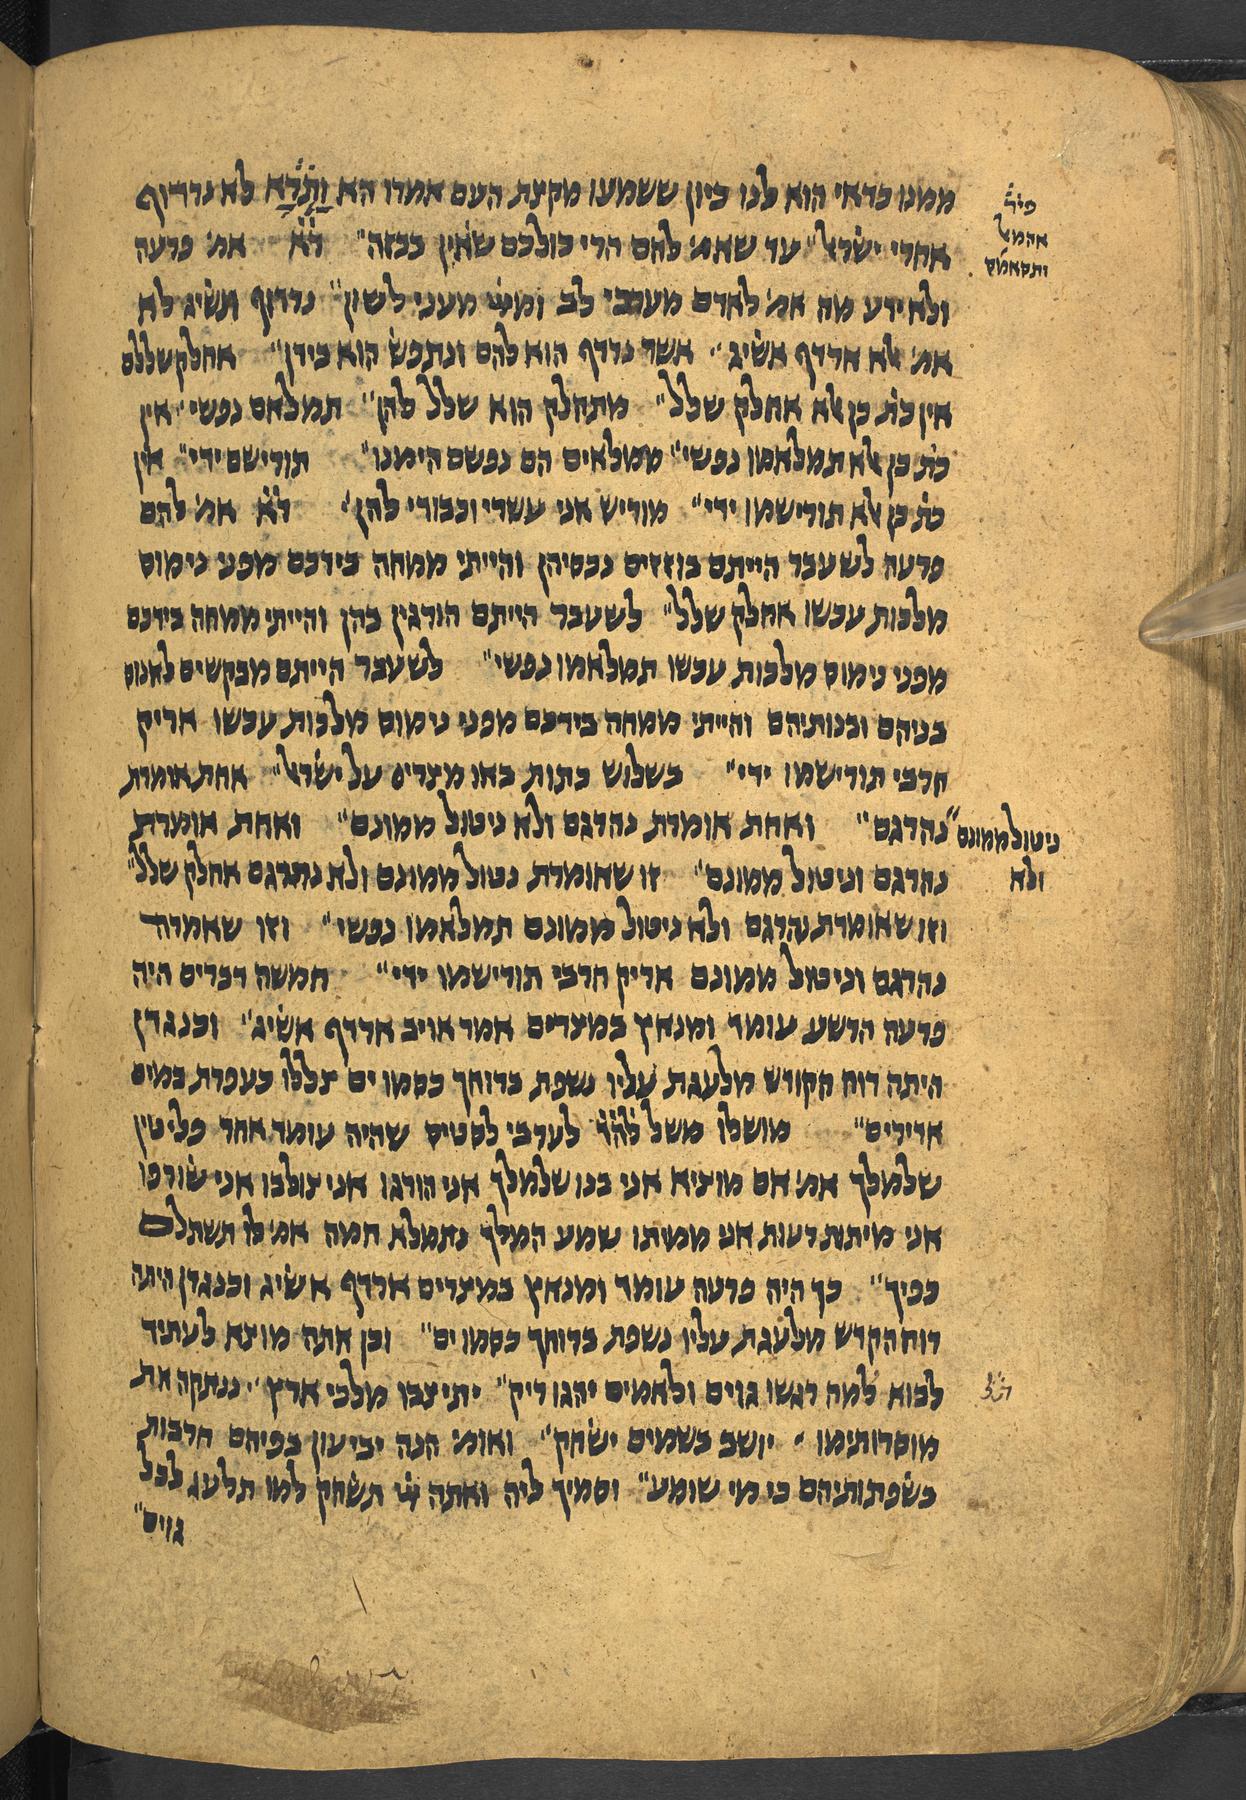 ממנו כדאי הוא לנו כיון ששמעו מקצת העם אמרו הא וָתָּרָא לא נרדוף
אחרי ישׂרל״ עד שאמ׳ להם הרי כולכם שׁאין ככזה״ דׄאׄ אמ׳ פרעה
ולא ידע מה אמ׳ לאדם מערכי לב ומיׄיׄ מעני לשון״ נרדוף ונשׂיג לא
אמ׳ אלא ארדף אשׂיג״ אשר נרדף הוא להם ונתפשׂ הוא בידן״ אחלק שללם
אין כתׄ כן אלא אחלק שלל״ מתחלק הוא שלל להן״ תמלאם נפשי״ אין
כתׄ כן אלא תמלאמו נפשי״ ממלאים הם נפשם הימנו״ תורישם ידי״ אין
כתׄ כן אלא תורישמו ידי״ מוריש אני עשרי וכבודי להן״ דׄאׄ אמ׳ להם
פרעה לשעבר הייתם בוזזים נכסיהן והייתי ממחה בידכם מפני נימוס
מלכות עכשו אחלק שלל״ לשעבר הייתם הורגין בהן והייתי ממחה בידכם
מפני נימוס מלכות עכשו תמלאמו נפשי״ לשעבר הייתם מבקשים לאנוס
בניהם ובנותיהם והייתי ממחה בידכם מפני נימוס מלכות עכשו אריק
חרבי תורישמו ידי״ בשלוש כתות באו מצרים על ישׂרל״ אחת אומרת
נהרגם״ ואחת אומרת נהרגם ולא ניטול ממונם״ ואחת אומרת
נהרגם וניטול ממונם״ זו שאומרת נטול ממונם ולא נהרגם אחלק שלל״
וזו שאומרת נהרגם ולא ניטול ממונם תמלאמו נפשי״ וזו שאמרה
נהרגם וניטול ממונם אריק חרבי תורישמו ידי״ חמשה דברים היה
פרעה הרשע עומד ומנאץ במצרים אמר אויב ארדף אשׂיג״ וכנגדן
היתה רוח הקודש מלעגת עליו נשפת ברוחך כסמו ים צללו כעפרת במים
אדירים״ מושלו משל להׄדׄ לערבי לסטיס שהיה עומד אחר פליטין
שלמלך אמ׳ אם מוציא אני בנו שלמלך אני הורגו אני צולבו אני שׂורפו
אני מיתות רעות אני ממיתו שמע המלך נתמלא חמה אמ׳ לו תשתלם
כפיך״ כך היה פרעה עומד ומנאץ במצרים ארדף אשׂיג וכנגדן היתה
רוח הקדש מלעגת עליו נשפת ברוחך כסמו ים״ וכן אתה מוצא לעתיד
לבוא למה רגשו גוים ולאמים יהגו ריק״ יתיצבו מלכי ארץ״ ננתקה את
מוסרותימו״ יושב בשמים ישׂחק״ ואומ׳ הנה יביעון בפיהם חרבות
בשׂפתותיהם כי מי שומע״ וסמיך ליה ואתה ייׄ תשׂחק למו תלעג לכל
גוים״
פירׄ
אהמל
ותסאמח
ניטול ממונם
ולא